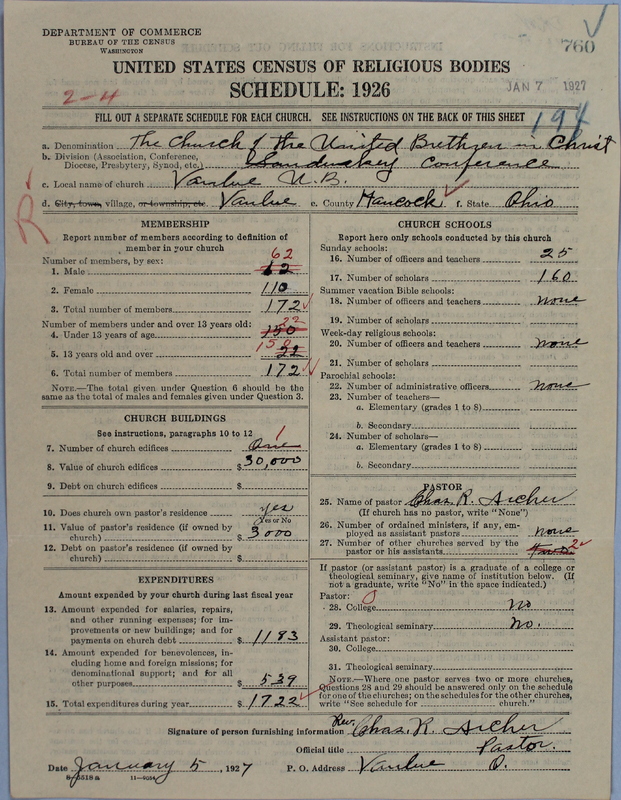 DEPARTMENT OF COMMERCE
BUREAU OF THE CENSUS
WASHINGTON
760
UNITED STATES CENSUS OF RELIGIOUS BODIES
SCHEDULE: 1926
JAN 7 1927
2-4
FILL OUT A SEPARATE SCHEDULE FOR EACH CHURCH. SEE INSTRUCTIONS ON THE BACK OF THIS SHEET
194
a. Denomination The Church of the United Brethren in Christ
b. Division (Association, Conference, Diocese, Presbytery, Synod, etc.) Sandusky Conference
c. Local name of church Vanlue U.B.
d. City, town, village, or township, etc. Vanlue e. County Hancock f. State Ohio
R
MEMBERSHIP
Report number of members according to definition of
member in your church
Number of members, by sex: 62
1. Male 12
2. Female 110
3. Total number of members 172
Number of members under and over 13 years old: 22
4. Under 13 years of age 150
5. 13 years old and over 150 22
6. Total number of members 172
NOTE.—The total given under Question 6 should be the
same as the total of males and females given under Question 3.
CHURCH BUILDINGS
See instructions, paragraphs 10 to 12
7. Number of church edifices One 1
8. Value of church edifices $ 30,000
9. Debt on church edifices $
10. Does church own pastor's residence yes
Yes or No
11. Value of pastor's residence (if owned by
church) $ 3000
12. Debt on pastor's residence (if owned by
church) $
EXPENDITURES
Amount expended by your church during last fiscal year
13. Amount expended for salaries, repairs,
and other running expenses; for im-
provements or new buildings; and for
payments on church debt $ 1183
14. Amount expended for benevolences, in-
cluding home and foreign missions; for
denominational support; and for all
other purposes $ 539
15. Total expenditures during year $ 1722
CHURCH SCHOOLS
Report here only schools conducted by this church
Sunday schools:
16. Number of officers and teachers 25
17. Number of scholars 160
Summer vacation Bible schools:
18. Number of officers and teachers none
19. Number of scholars
Week-day religious schools:
20. Number of officers and teachers none
21. Number of scholars
Parochial schools:
22. Number of administrative officers none
23. Number of teachers—
a. Elementary (grades 1 to 8)
b. Secondary
24. Number of scholars—
a. Elementary (grades 1 to 8)
b. Secondary
PASTOR
25. Name of pastor Chas. R. Archer
(If church has no pastor, write "None")
26. Number of ordained ministers, if any, em-
ployed as assistant pastors none
27. Number of other churches served by the
pastor or his assistants 2
If pastor (or assistant pastor) is a graduate of a college or
theological seminary, give name of institution below. (If
not a graduate, write "No" in the space indicated.)
Pastor: 0
28. College No
29. Theological seminary No.
Assistant pastor:
30. College
31. Theological seminary
NOTE.—Where one pastor serves two or more churches,
Questions 28 and 29 should be answered only on the schedule
for one of the churches; on the schedules for the other churches,
write "See schedule for ______ church."
Signature of person furnishing information Rev. Chas. R. Archer
Official title Pastor.
Date January 5, 1927 P. O. Address Vanlue O.